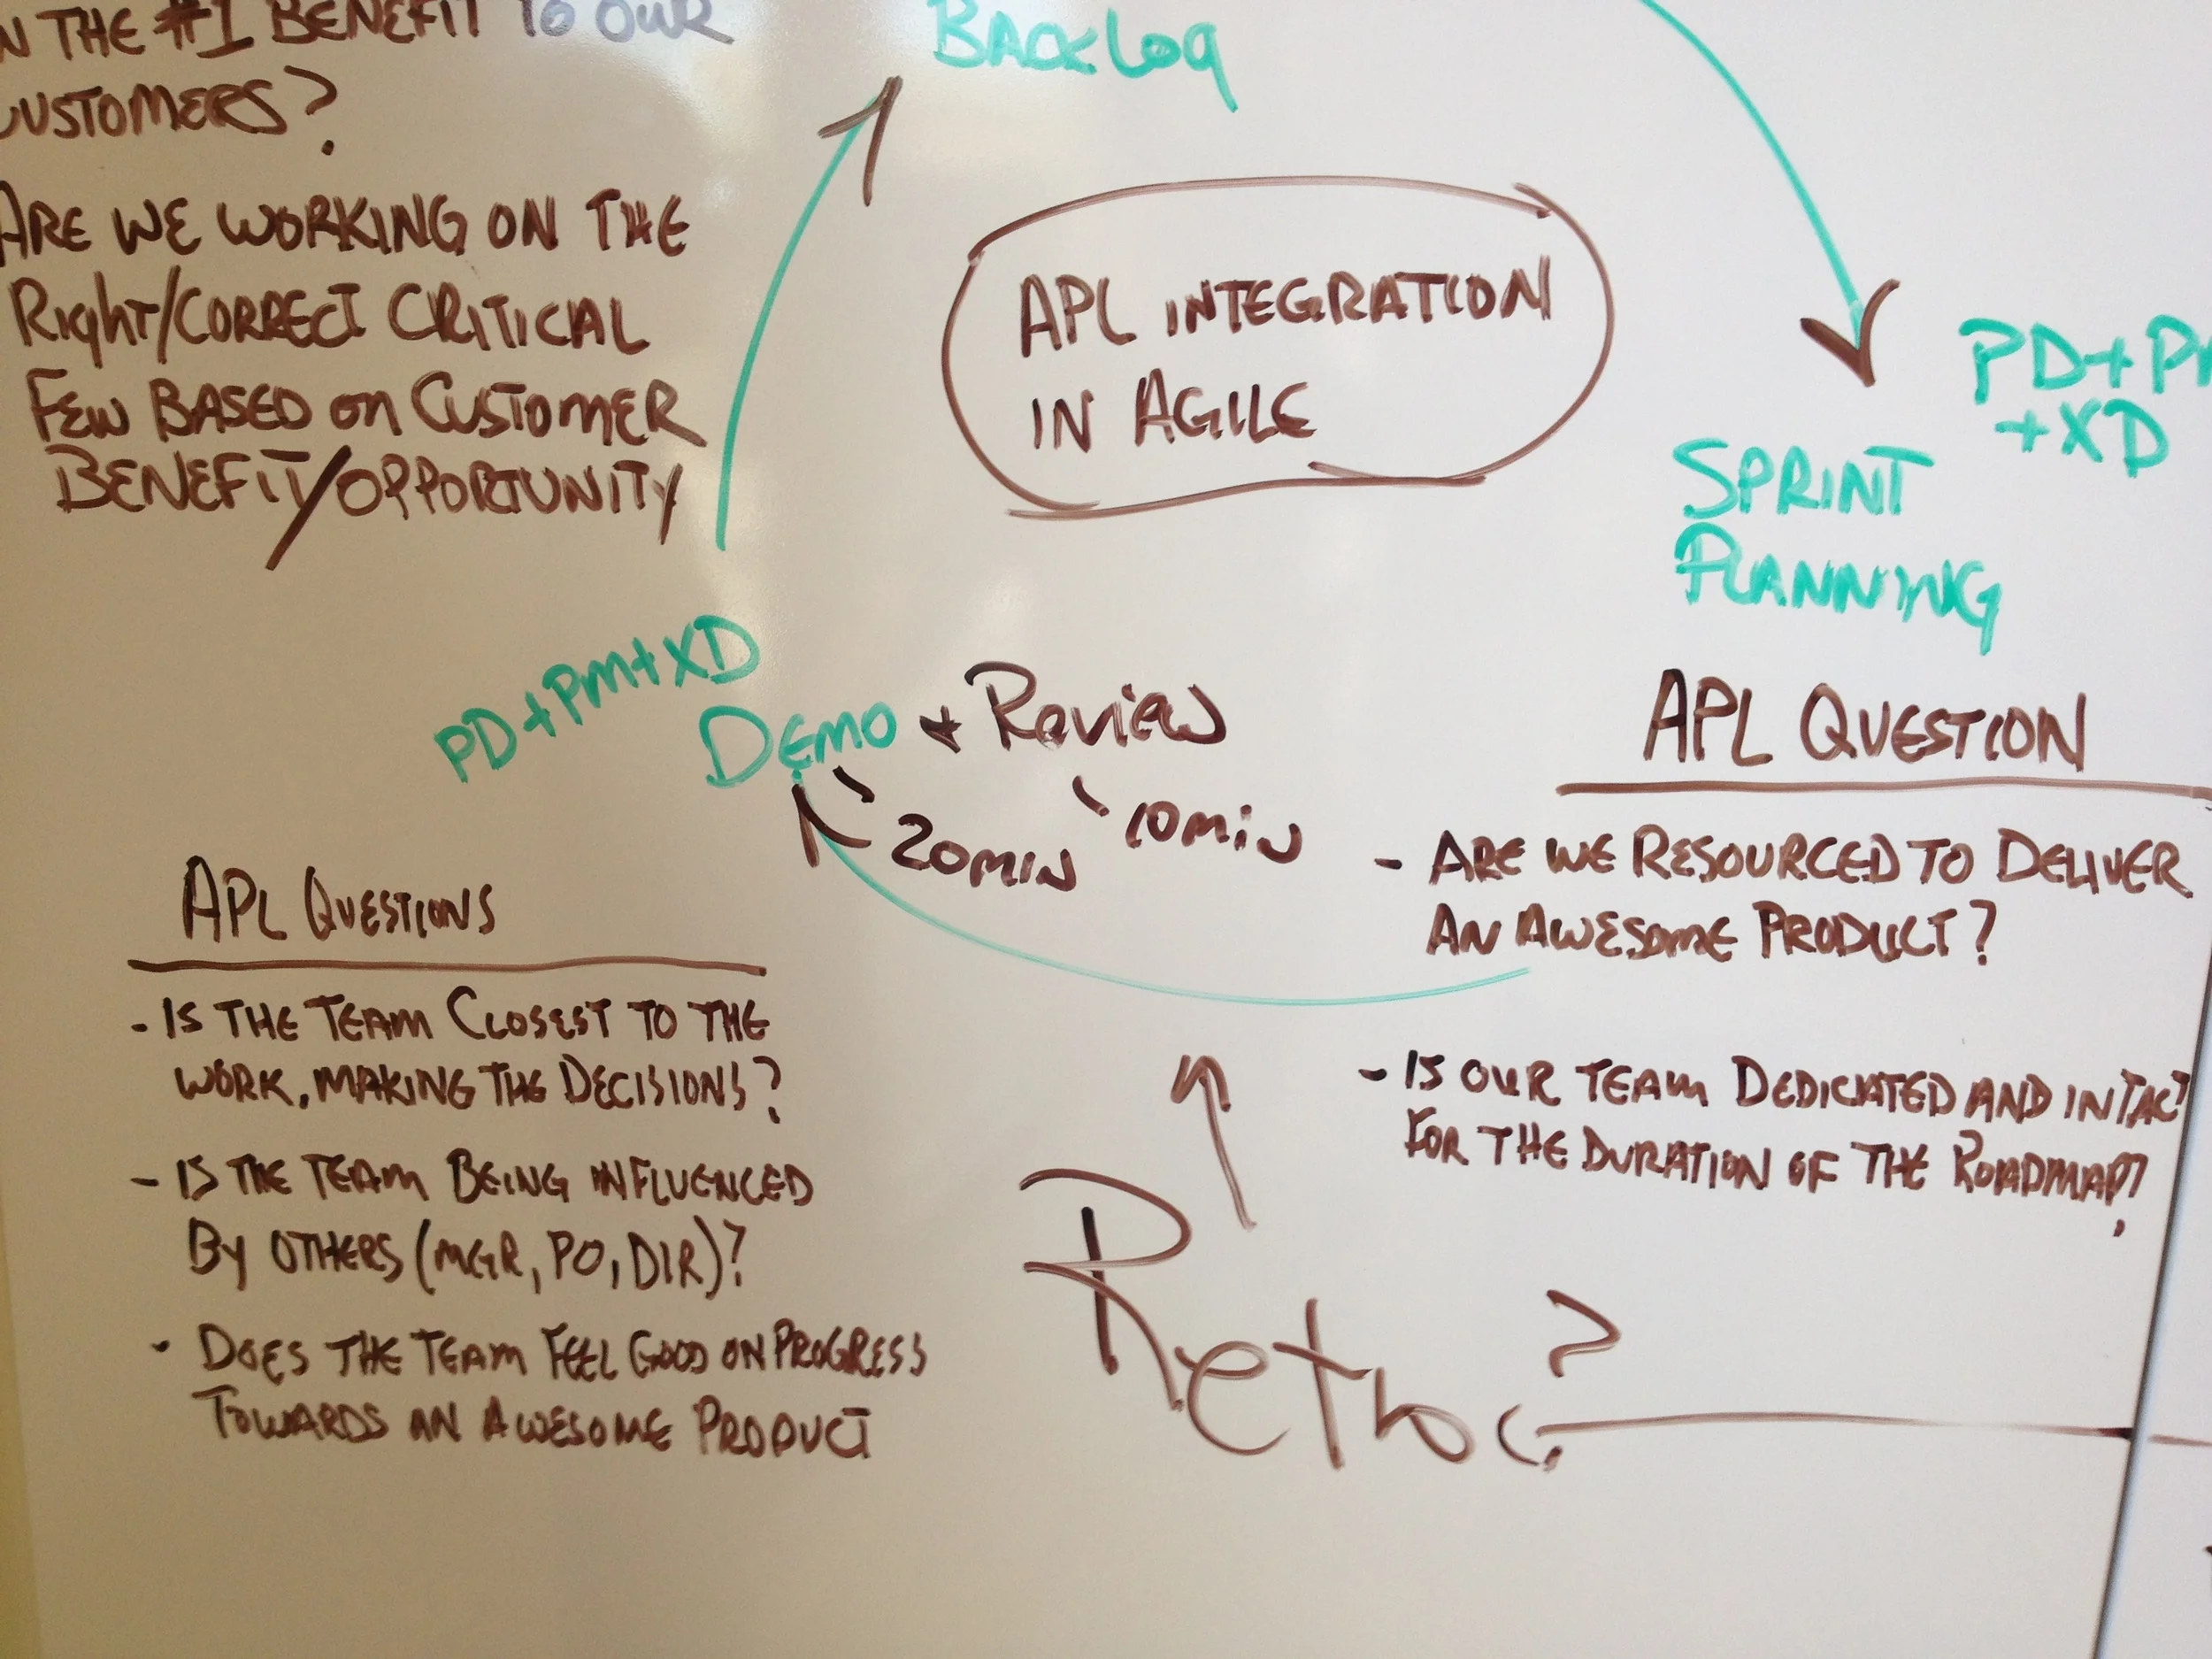 THE #1 BENEFIT TO OUR
CUSTOMERS?
ARE WE WORKING ON THE
RIGHT/CORRECT CRITICAL
FEW BASED ON CUSTOMER
BENEFIT/OPPORTUNITY
BACKLOG
APL INTEGRATION
IN AGILE
PD+PM
+XD
SPRINT
PLANNING
PD+PM+XD
DEMO + Review
20MIN
10min
APL QUESTIONS
- IS THE TEAM CLOSEST TO THE
WORK, MAKING THE DECISIONS?
- IS THE TEAM BEING INFLUENCED
BY OTHERS (MGR, PO, DIR)?
- DOES THE TEAM FEEL GOOD ON PROGRESS
TOWARDS AN AWESOME PRODUCT
APL QUESTION
- ARE WE RESOURCED TO DELIVER
AN AWESOME PRODUCT?
- IS OUR TEAM DEDICATED AND INTACT
FOR THE DURATION OF THE ROADMAP?
Retro?